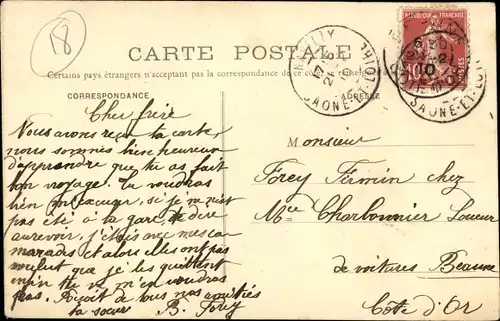 18
CARTE POSTALE
Certains pays étrangers n'acceptent pas la correspondance de ce
CORRESPONDANCE
ADRESSE
RÉPUBLIQUE FRANÇAISE
10
POSTES
SAÔNE-ET-LOIRE
SAÔNE-ET-LOIRE
Cher frère
Nous avons reçu ta carte,
nous sommes bien heureux
d'apprendre que tu as fait
bon voyage. Tu voudras
bien m'excuser, si je n'ai
pas été à la gare te dire
aurevoir, j'étais avec mes ca
marades et alors elles ont pas
voulut que je les quittent
enfin tu ne m'en voudras
pas. Reçoit de tous nos amitiés
ta soeur B. Forey
Monsieur
Forey Firmin chez
Mr Charbonnier Loueur
de voitures Beaune
Côte d'Or